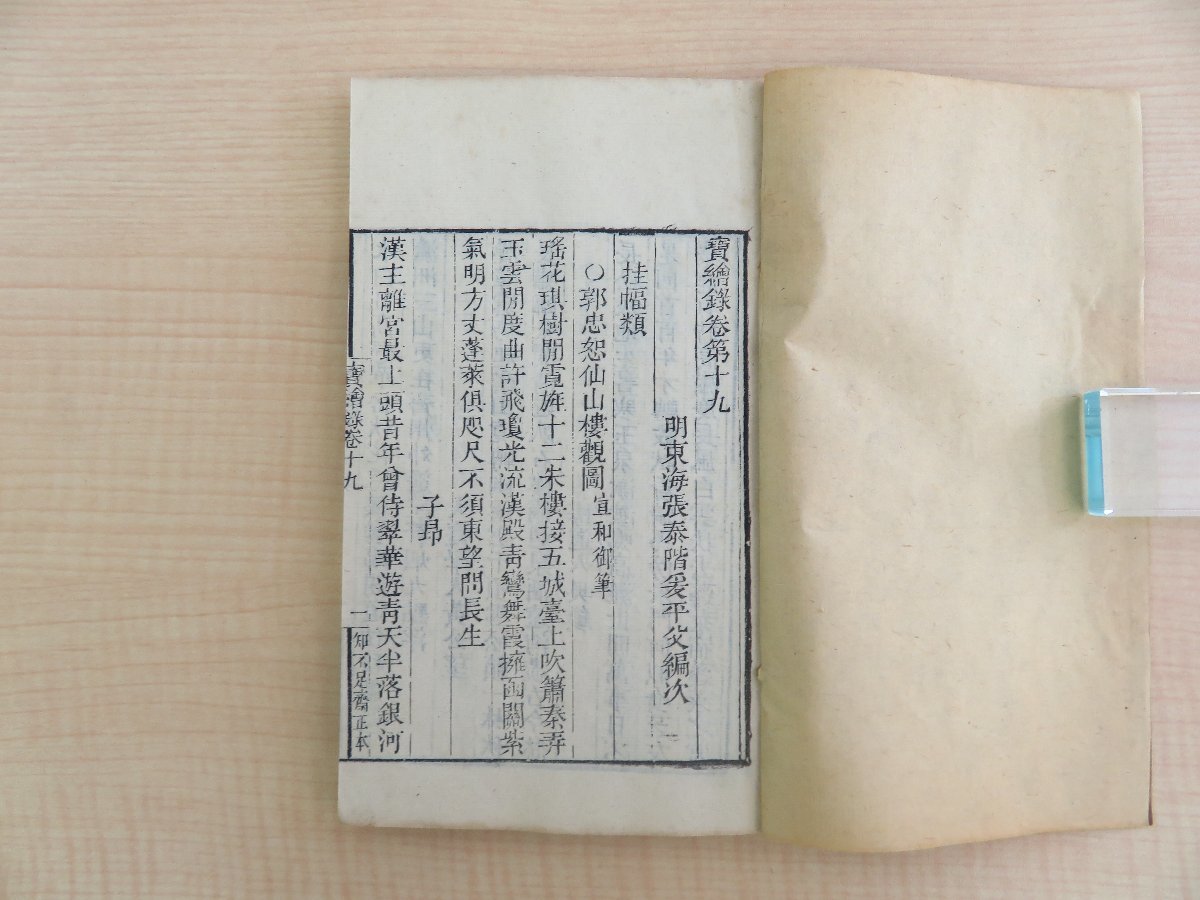 寶繪錄卷第十九
明東海張泰階爰平父編次
挂幅類
○郭忠恕仙山樓觀圖 宣和御筆
瑤花琪樹閒霓旌十二朱樓接五城臺上吹簫秦弄
玉雲閒度曲許飛瓊光流漢殿青鸞舞霞擁函關紫
氣明方丈蓬萊俱咫尺不須東望問長生
子昂
漢主離宮最上頭昔年曾侍翠華遊青天半落銀河
寶繪錄卷十九
一
知不足齋正本